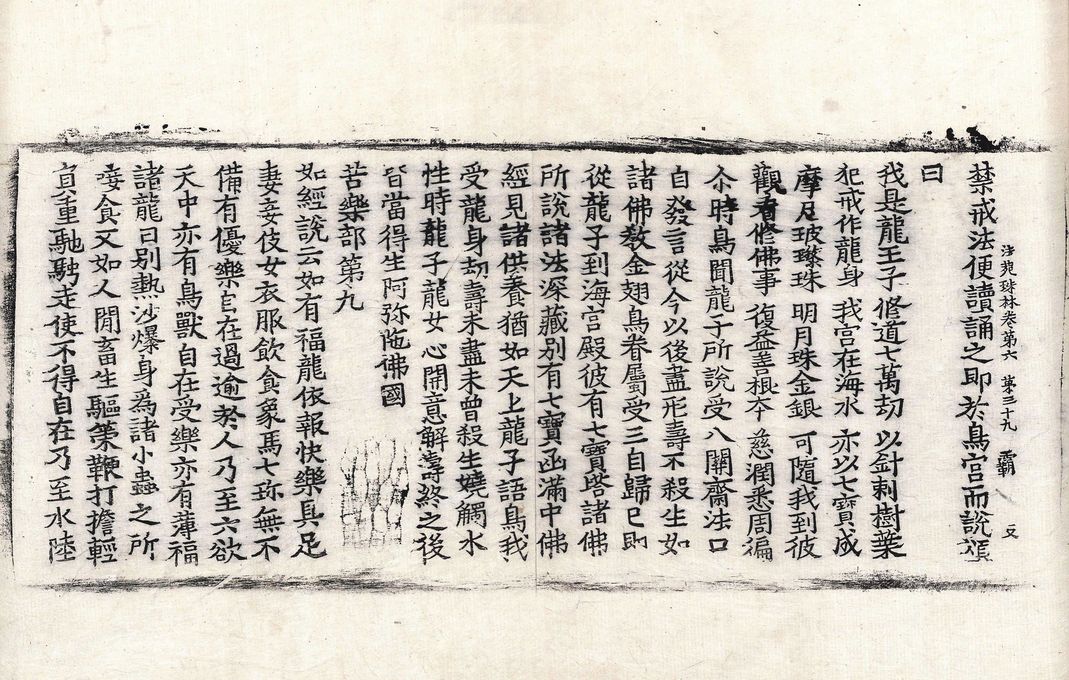 禁戒法便讀誦之即於鳥宮而說頌
法苑珠林卷第六 苐三十九 覇
曰
我是龍王子 修道七萬劫 以針刺樹葉
犯戒作龍身 我宮在海水 亦以七寶成
摩尼玻瓈珠 明月珠金銀 可隨我到彼
觀看修佛事 復益善根夲 慈潤悉周徧
尒時鳥聞龍子所說受八關齋法口
自發言從今以後盡形壽不殺生如
諸佛敎金翅鳥眷屬受三自歸已則
從龍子到海宮殿彼有七寶塔諸佛
所說諸法深藏別有七寶函滿中佛
經見諸供養猶如天上龍子語鳥我
受龍身劫壽未盡未曾殺生嬈觸水
性時龍子龍女心開意解壽終之後
皆當得生阿弥陁佛國
苦樂部第九
如經說云如有福龍依報快樂具足
妻妾伎女衣服飲食象馬七珎無不
備有優樂自在過逾於人乃至六欲
天中亦有鳥獸自在受樂亦有薄福
諸龍日別熱沙爆身為諸小蟲之所
唼食又如人閒畜生驅䇿鞭打擔輕
負重馳騁走使不得自在乃至水陸